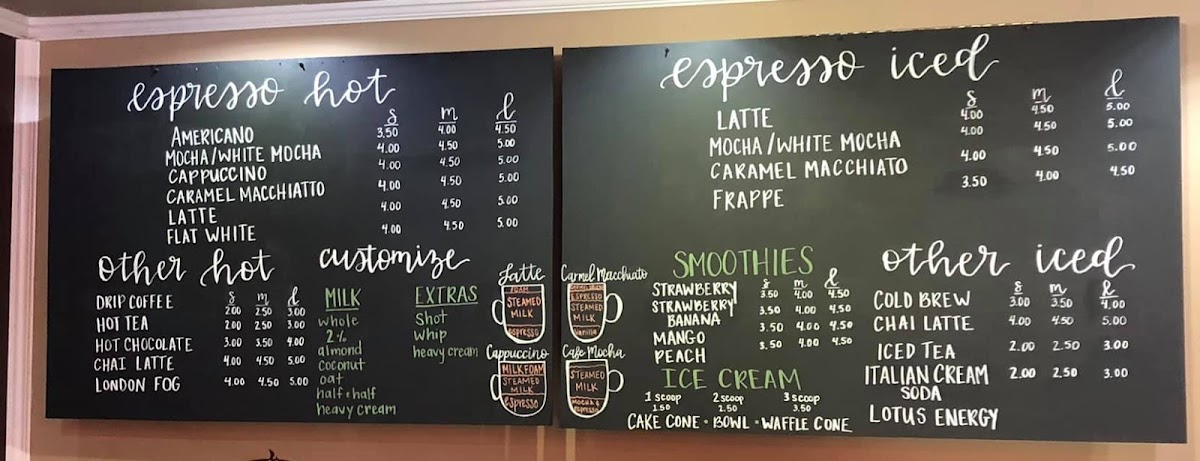 espresso hot
s m l
AMERICANO 3.50 4.00 4.50
MOCHA/WHITE MOCHA 4.00 4.50 5.00
CAPPUCCINO 4.00 4.50 5.00
CARAMEL MACCHIATTO 4.00 4.50 5.00
LATTE 4.00 4.50 5.00
FLAT WHITE 4.00 4.50 5.00
other hot
s m l
DRIP COFFEE 2.00 2.50 3.00
HOT TEA 2.00 2.50 3.00
HOT CHOCOLATE 3.00 3.50 4.00
CHAI LATTE 4.00 4.50 5.00
LONDON FOG 4.00 4.50 5.00
customize
MILK
whole
2%
almond
coconut
oat
half + half
heavy cream
EXTRAS
Shot
whip
heavy cream
Latte
FOAM
STEAMED
MILK
espresso
Cappuccino
MILK FOAM
STEAMED
MILK
espresso
espresso iced
s m l
LATTE 4.00 4.50 5.00
MOCHA/WHITE MOCHA 4.00 4.50 5.00
CARAMEL MACCHIATO 4.00 4.50 5.00
FRAPPE 3.50 4.00 4.50
Carmel Macchiato
ESPRESSO
STEAMED
MILK
Vanilla
Cafe Mocha
STEAMED
MILK
MOCHA &
ESPRESSO
SMOOTHIES
s m l
STRAWBERRY 3.50 4.00 4.50
STRAWBERRY
BANANA 3.50 4.00 4.50
MANGO 3.50 4.00 4.50
PEACH
ICE CREAM
1 scoop 2 scoop 3 scoop
1.50 2.50 3.50
CAKE CONE · BOWL · WAFFLE CONE
other iced
s m l
COLD BREW 3.00 3.50 4.00
CHAI LATTE 4.00 4.50 5.00
ICED TEA 2.00 2.50 3.00
ITALIAN CREAM 2.00 2.50 3.00
SODA
LOTUS ENERGY